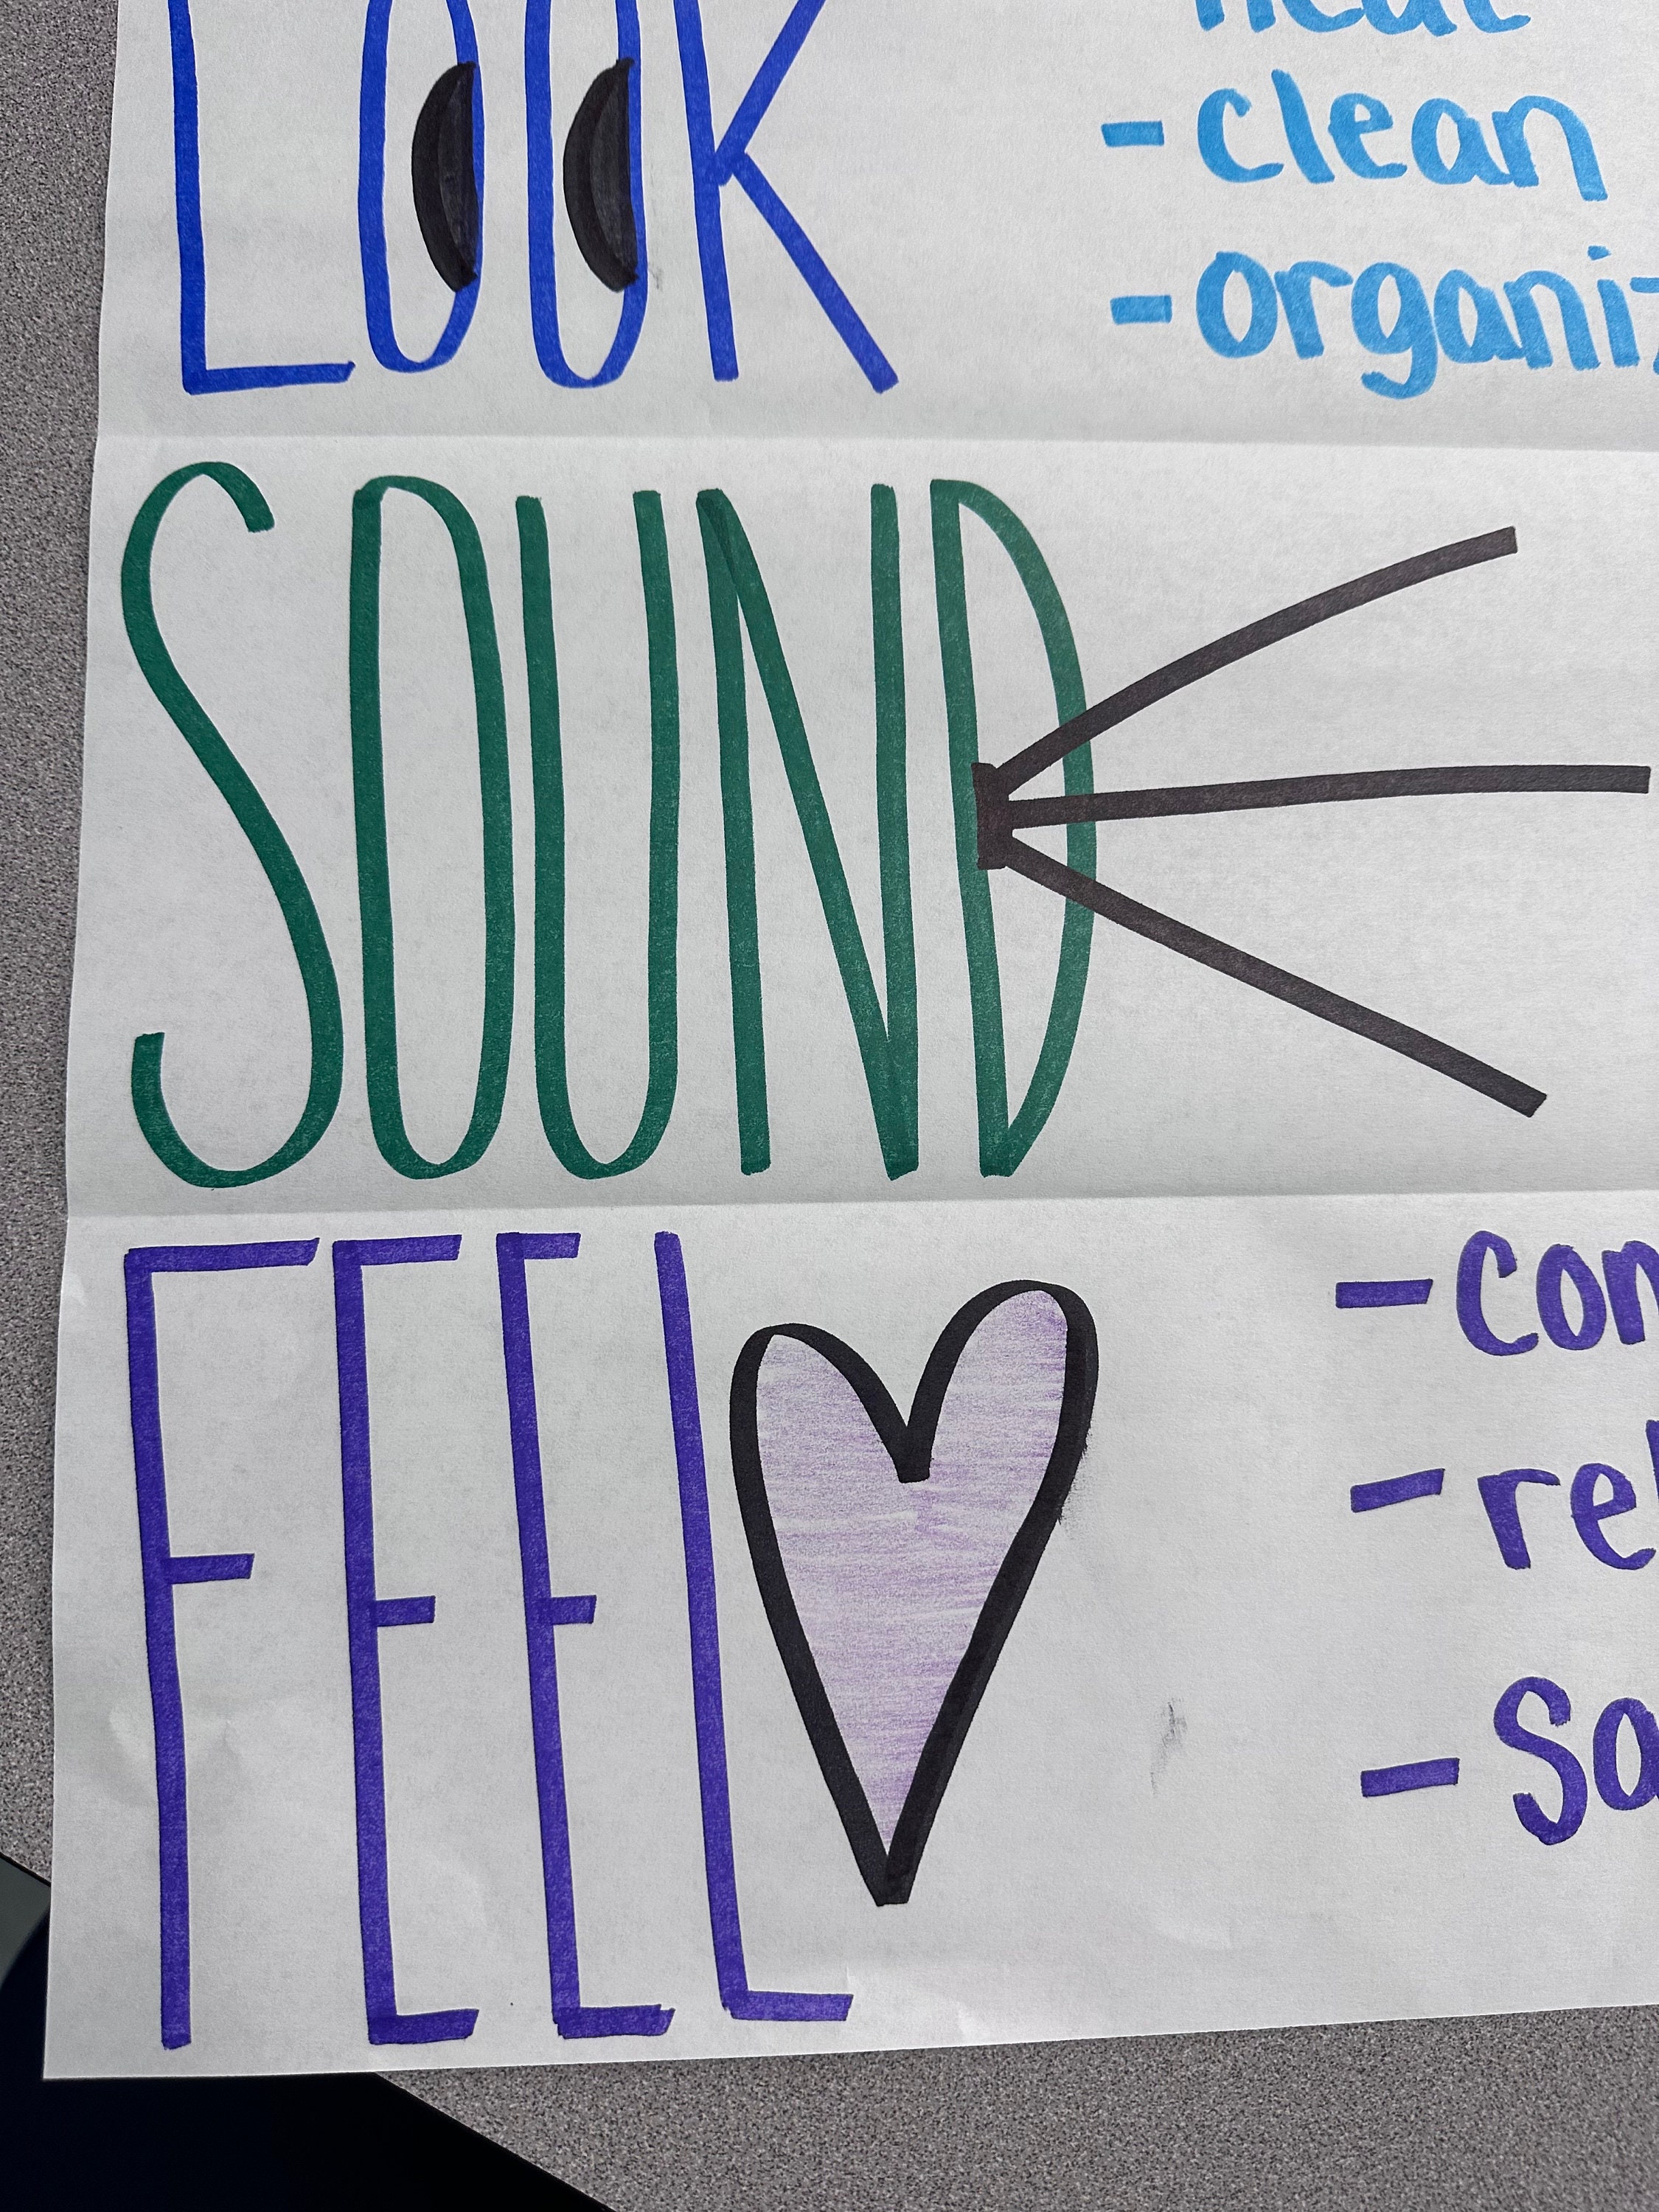 LOOK
neat
- clean
- organiz
SOUND
FEEL
- con
- rel
- Sa